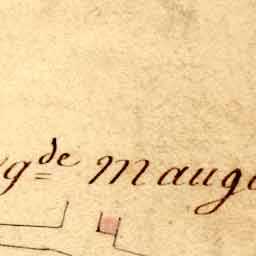 g.de Maug